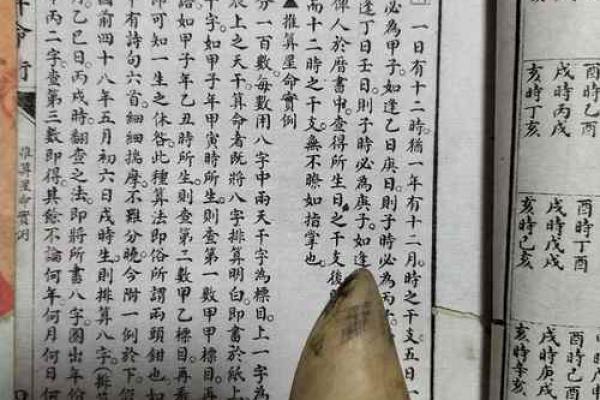 酉時乙酉
戌時丙戌
亥時丁亥
酉時丁酉
戌時戊戌
亥時己亥
酉時己
戌時庚戌
亥時辛亥
一日有十二時猶一年有十二月。時之干支五日一
必為甲子。如逢乙日庚日。則子時必為丙
逢丁日壬日。則子時必為庚子。如逢
俾人於曆書中。查得所生日之干支後
而十二時之干支。無不瞭如指掌也。
▲推算星命實例
分一百數。每數用八字中兩天干字為標目。上一字為
辰上之天干。算命者既將八字排算明白。即書於紙上
字。如甲子年甲寅時所生。則查第一數甲甲標目。再
語如甲子年乙丑時所生則查第二數甲乙標目。再看
即可知一生之休咎。此種算法。即俗所謂兩頭鉗也。如
中有詩句六首。細細揣摩。不難分曉。今附一例於下。
國前四十八年五月初六日戌時生。則排算八字。
月乙巳日。丙戌時。翻查之法。即將所書八字。圈出年
丙二字。查第三數即得。其餘不論何年何月何日何
命
推算星命實例